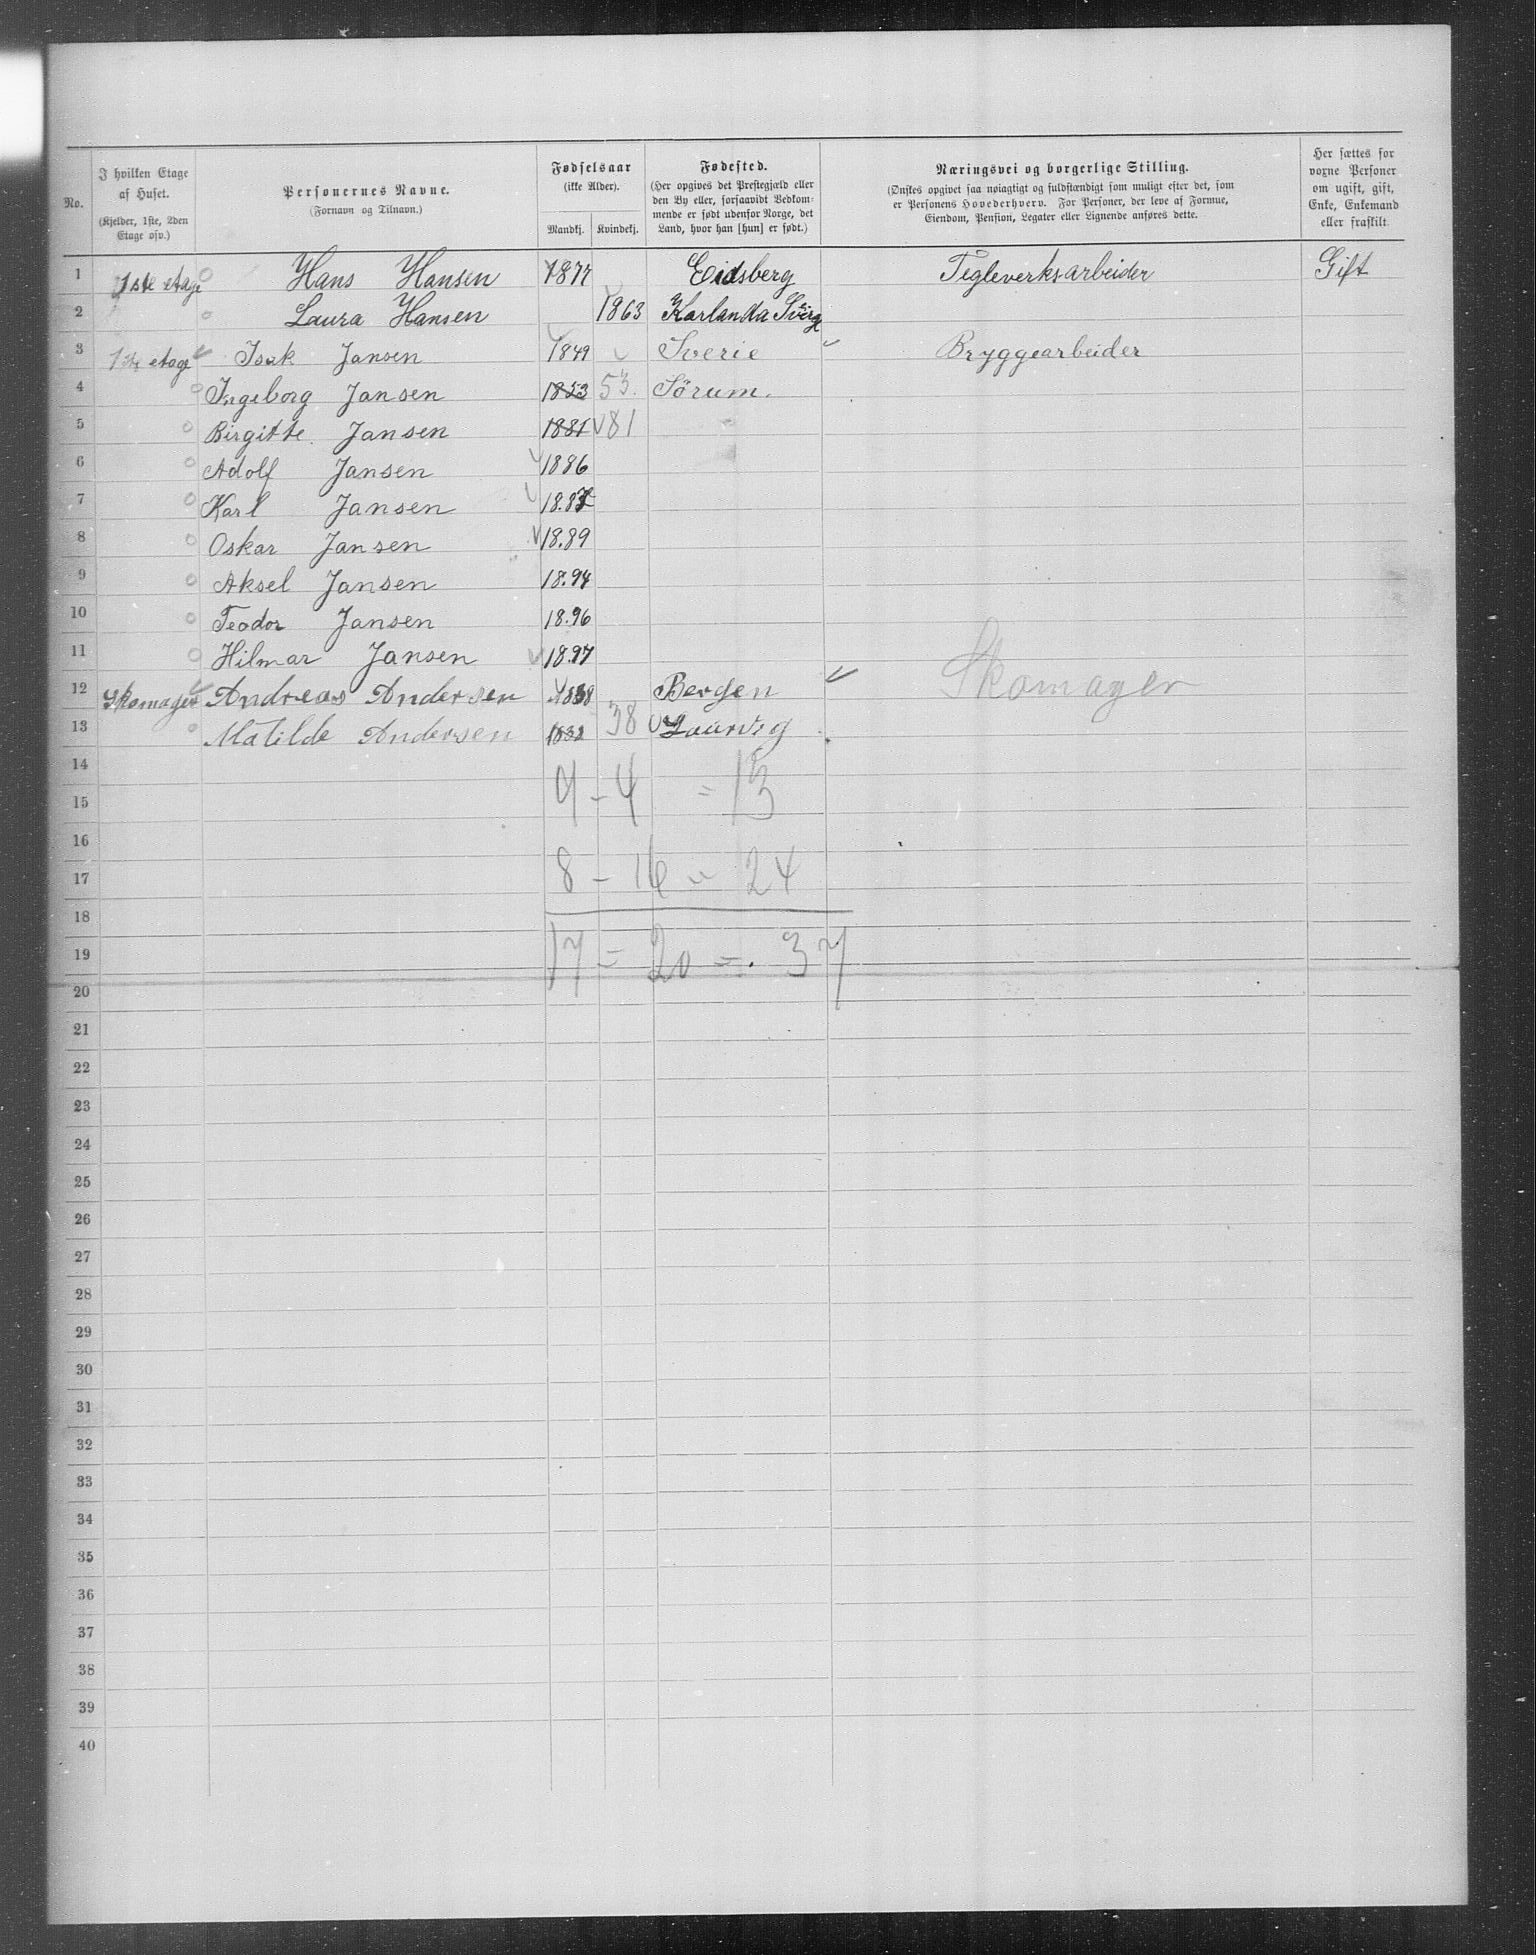 No. | I hvilken Etage af Huset. (Kjelder, 1ste, 2den Etage osv.) | Personernes Navne. (Fornavn og Tilnavn.) | Fødselsaar (ikke Alder). Mandkj. Kvindekj. | Fødested. (Her opgives det Prestegjæld eller den By eller, forsaavidt Vedkommende er født udenfor Norge, det Land, hvor han [hun] er født.) | Næringsvei og borgerlige Stilling. (Ønskes opgivet saa nøiagtigt og fuldstændigt som muligt efter det, som er Personens Hovederhverv. For Personer, der leve af Formue, Eiendom, Pension, Legater eller Lignende anføres dette. | Her sættes for voxne Personer om ugift, gift, Enke, Enkemand eller fraskilt.
1 1ste etage Hans Hansen 1877 Eidsberg Tegleverksarbeider Gift
2 Laura Hansen 1863 Karlanda Sverge
3 1ste etage Isak Jansen 1849 Sverie Bryggearbeider
4 Ingeborg Jansen 1853 53. Sörum.
5 Birgitte Jansen 1881 81
6 Adolf Jansen 1886
7 Karl Jansen
8 Oskar Jansen 18.89
9 Aksel Jansen 18.94
10 Teodor Jansen 18.96
11 Hilmar Jansen 18.97
12 Skomager Andreas Andersen 1838 Bergen Skomager
13 Matilde Andersen 38 Laurvig
14
15 9 - 4 = 13
16
17 8 - 16 = 24
18
19 17 = 20 = 37
20
21
22
23
24
25
26
27
28
29
30
31
32
33
34
35
36
37
38
39
40